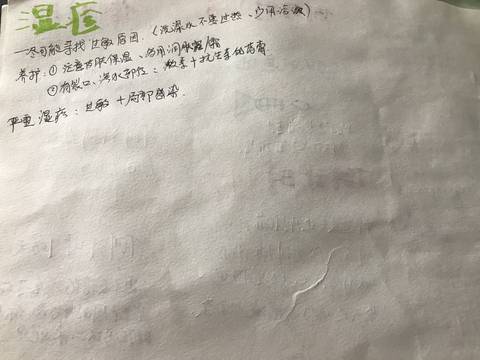 湿疹
一尽可能寻找过敏原因.（洗澡水不要过热、少用浴液）
养护：① 注意皮肤保湿、公用润肤霜
② 有裂口、流水部位：激素+抗生素的药膏.
严重湿疹：过敏+局部感染.